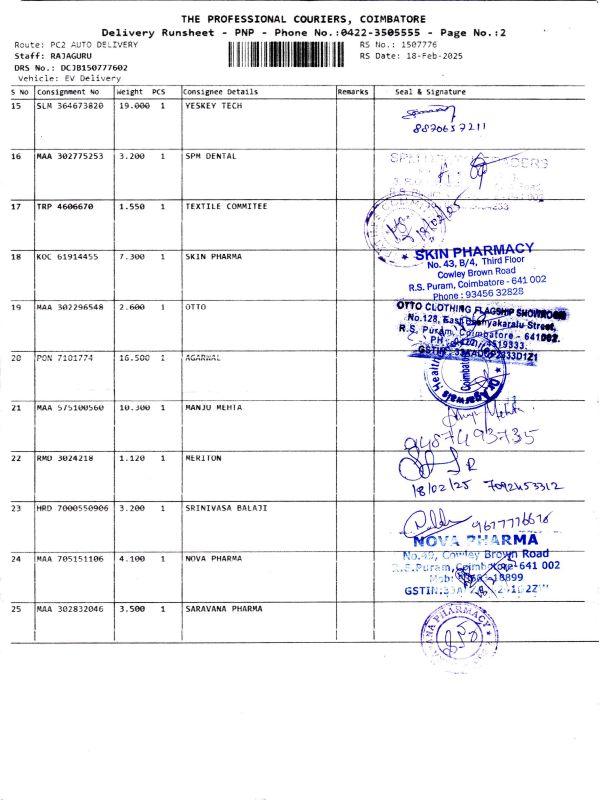 THE PROFESSIONAL COURIERS, COIMBATORE
Delivery Runsheet - PNP - Phone No.:0422-3505555 - Page No.:2
Route: PC2 AUTO DELIVERY
RS No.: 1507776
Staff: RAJAGURU
RS Date: 18-Feb-2025
DRS No.: DCJB150777602
Vehicle: EV Delivery
S No Consignment No Weight PCS Consignee Details Remarks Seal & Signature
15 SLM 364673820 19.000 1 YESKEY TECH
8870657211
16 MAA 302775253 3.200 1 SPM DENTAL
17 TRP 4606670 1.550 1 TEXTILE COMMITEE
18/02/25
18 KOC 61914455 7.300 1 SKIN PHARMA
SKIN PHARMACY
No. 43, B/4, Third Floor
Cowley Brown Road
R.S. Puram, Coimbatore - 641 002
Phone : 93456 32828
19 MAA 302296548 2.600 1 OTTO
OTTO CLOTHING FLAGSHIP SHOWROOM
R.S. Puram, Coimbatore - 641002.
20 PON 7101774 16.500 1 AGARWAL
Dr Agarwals Health
Coimbatore
21 MAA 575100560 10.300 1 MANJU MEHTA
Manju Mehta
9487493735
22 RMD 3024218 1.120 1 MERITON
18/02/25 7092453312
23 HRD 7000550906 3.200 1 SRINIVASA BALAJI
9677776676
24 MAA 705151106 4.100 1 NOVA PHARMA
NOVA PHARMA
No.49, Cowley Brown Road
R.S.Puram, Coimbatore-641 002
25 MAA 302832046 3.500 1 SARAVANA PHARMA